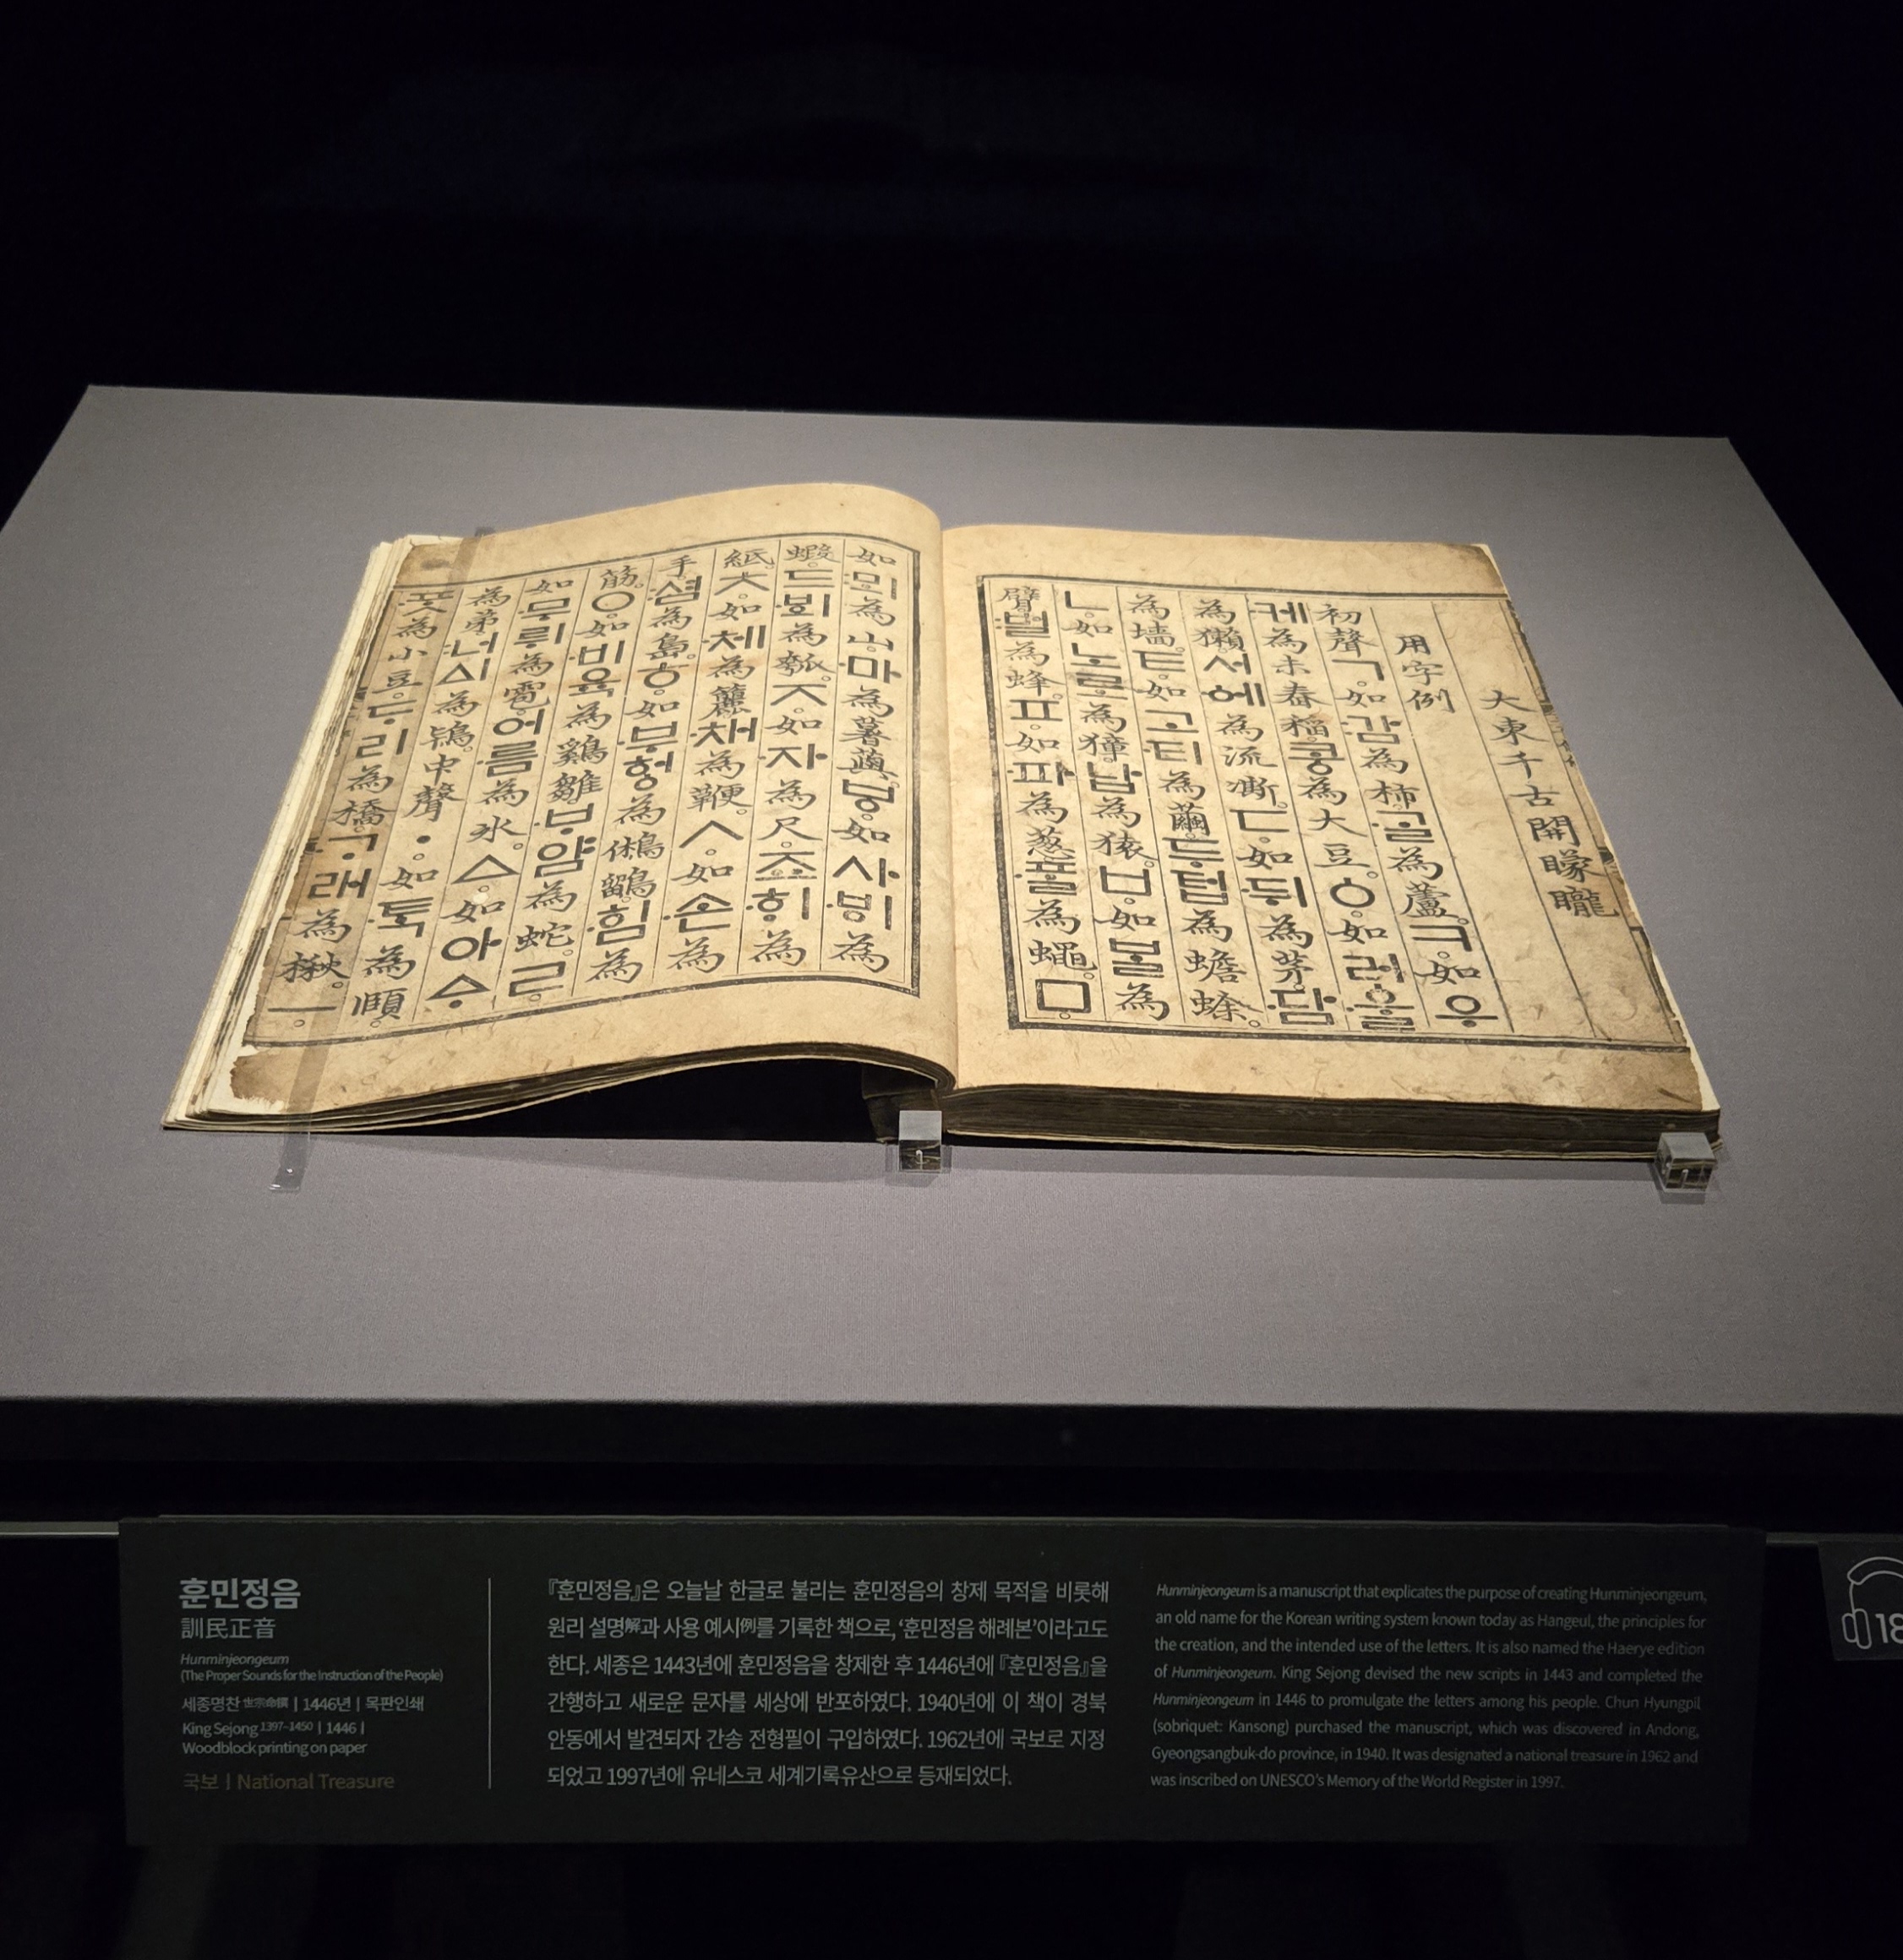 大東千古開矇矓
用字例
初聲ㄱ。如감為柿。ᄀᆞᆯ為蘆。ㅋ。如우
케為未舂稻。콩為大豆。ㆁ。如러ᅌᅮᆯ
為獺。서ᅌᅦ為流凘。ㄷ。如뒤為茅。담
為墻。ㅌ。如고티為繭。두텁為蟾蜍。
ㄴ。如노로為獐。납為猿。ㅂ。如ᄇᆞᆯ為
臂。벌為蜂。ㅍ。如파為葱。ᄑᆞᆯ為蠅。ㅁ。
如뫼為山。마為薯藇。ㅸ。如사ᄫᅵ為
蝦。드ᄫᅴ為瓠。ㅈ。如자為尺。죠ᄒᆡ為
紙。ㅊ。如체為籭。채為鞭。ㅅ。如손為
手。셤為島。ㅎ。如부헝為鵂鶹。힘為
筋。ㅇ。如비육為鷄雛。ᄇᆞ얌為蛇。ㄹ。
如무뤼為雹。어름為氷。ㅿ。如아ᅀᆞ
為弟。너ᅀᅵ為鴇。中聲ㆍ。如ᄐᆞᆨ為頤。
ᄑᆞᆺ為小豆。ᄃᆞ리為橋。ᄀᆞ래為楸。ㅡ。
훈민정음
訓民正音
Hunminjeongeum
(The Proper Sounds for the Instruction of the People)
세종명찬 世宗命撰 | 1446년 | 목판인쇄
King Sejong 1397–1450 | 1446 |
Woodblock printing on paper
국보 | National Treasure
『훈민정음』은 오늘날 한글로 불리는 훈민정음의 창제 목적을 비롯해
원리 설명解과 사용 예시例를 기록한 책으로, ‘훈민정음 해례본’이라고도
한다. 세종은 1443년에 훈민정음을 창제한 후 1446년에 『훈민정음』을
간행하고 새로운 문자를 세상에 반포하였다. 1940년에 이 책이 경북
안동에서 발견되자 간송 전형필이 구입하였다. 1962년에 국보로 지정
되었고 1997년에 유네스코 세계기록유산으로 등재되었다.
Hunminjeongeum is a manuscript that explicates the purpose of creating Hunminjeongeum,
an old name for the Korean writing system known today as Hangeul, the principles for
the creation, and the intended use of the letters. It is also named the Haerye edition
of Hunminjeongeum. King Sejong devised the new scripts in 1443 and completed the
Hunminjeongeum in 1446 to promulgate the letters among his people. Chun Hyungpil
(sobriquet: Kansong) purchased the manuscript, which was discovered in Andong,
Gyeongsangbuk-do province, in 1940. It was designated a national treasure in 1962 and
was inscribed on UNESCO's Memory of the World Register in 1997.